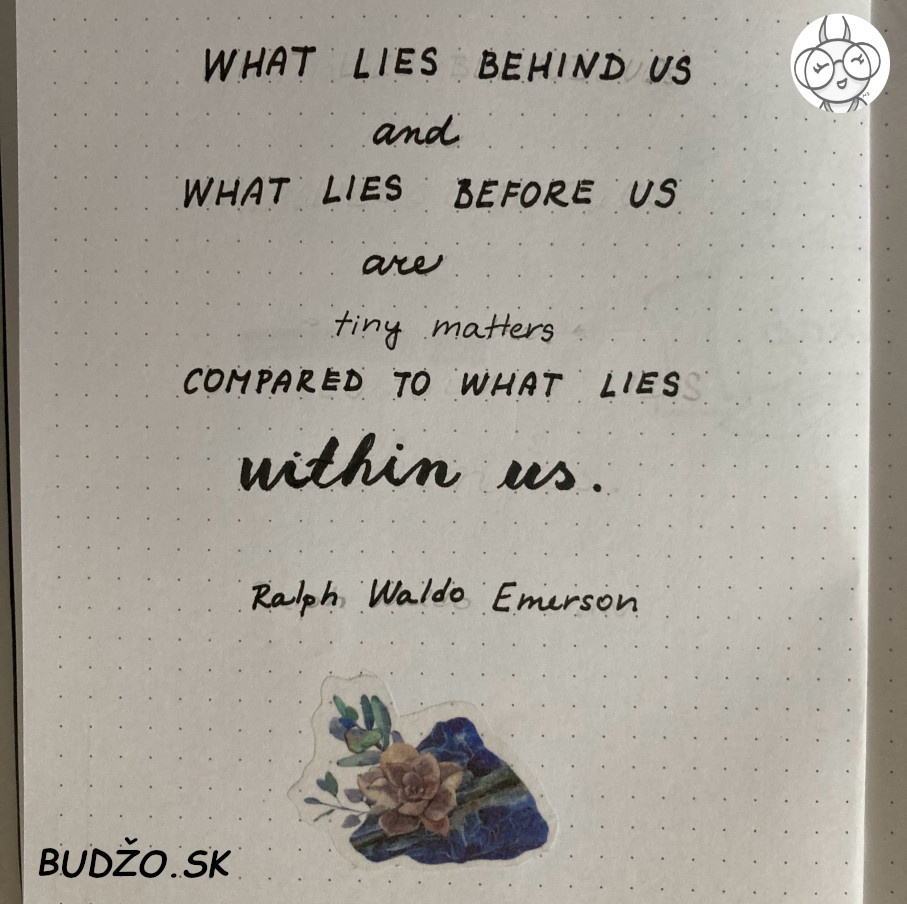 WHAT LIES BEHIND US
and
WHAT LIES BEFORE US
are
tiny matters
COMPARED TO WHAT LIES
within us.
Ralph Waldo Emerson
BUDŽO.SK